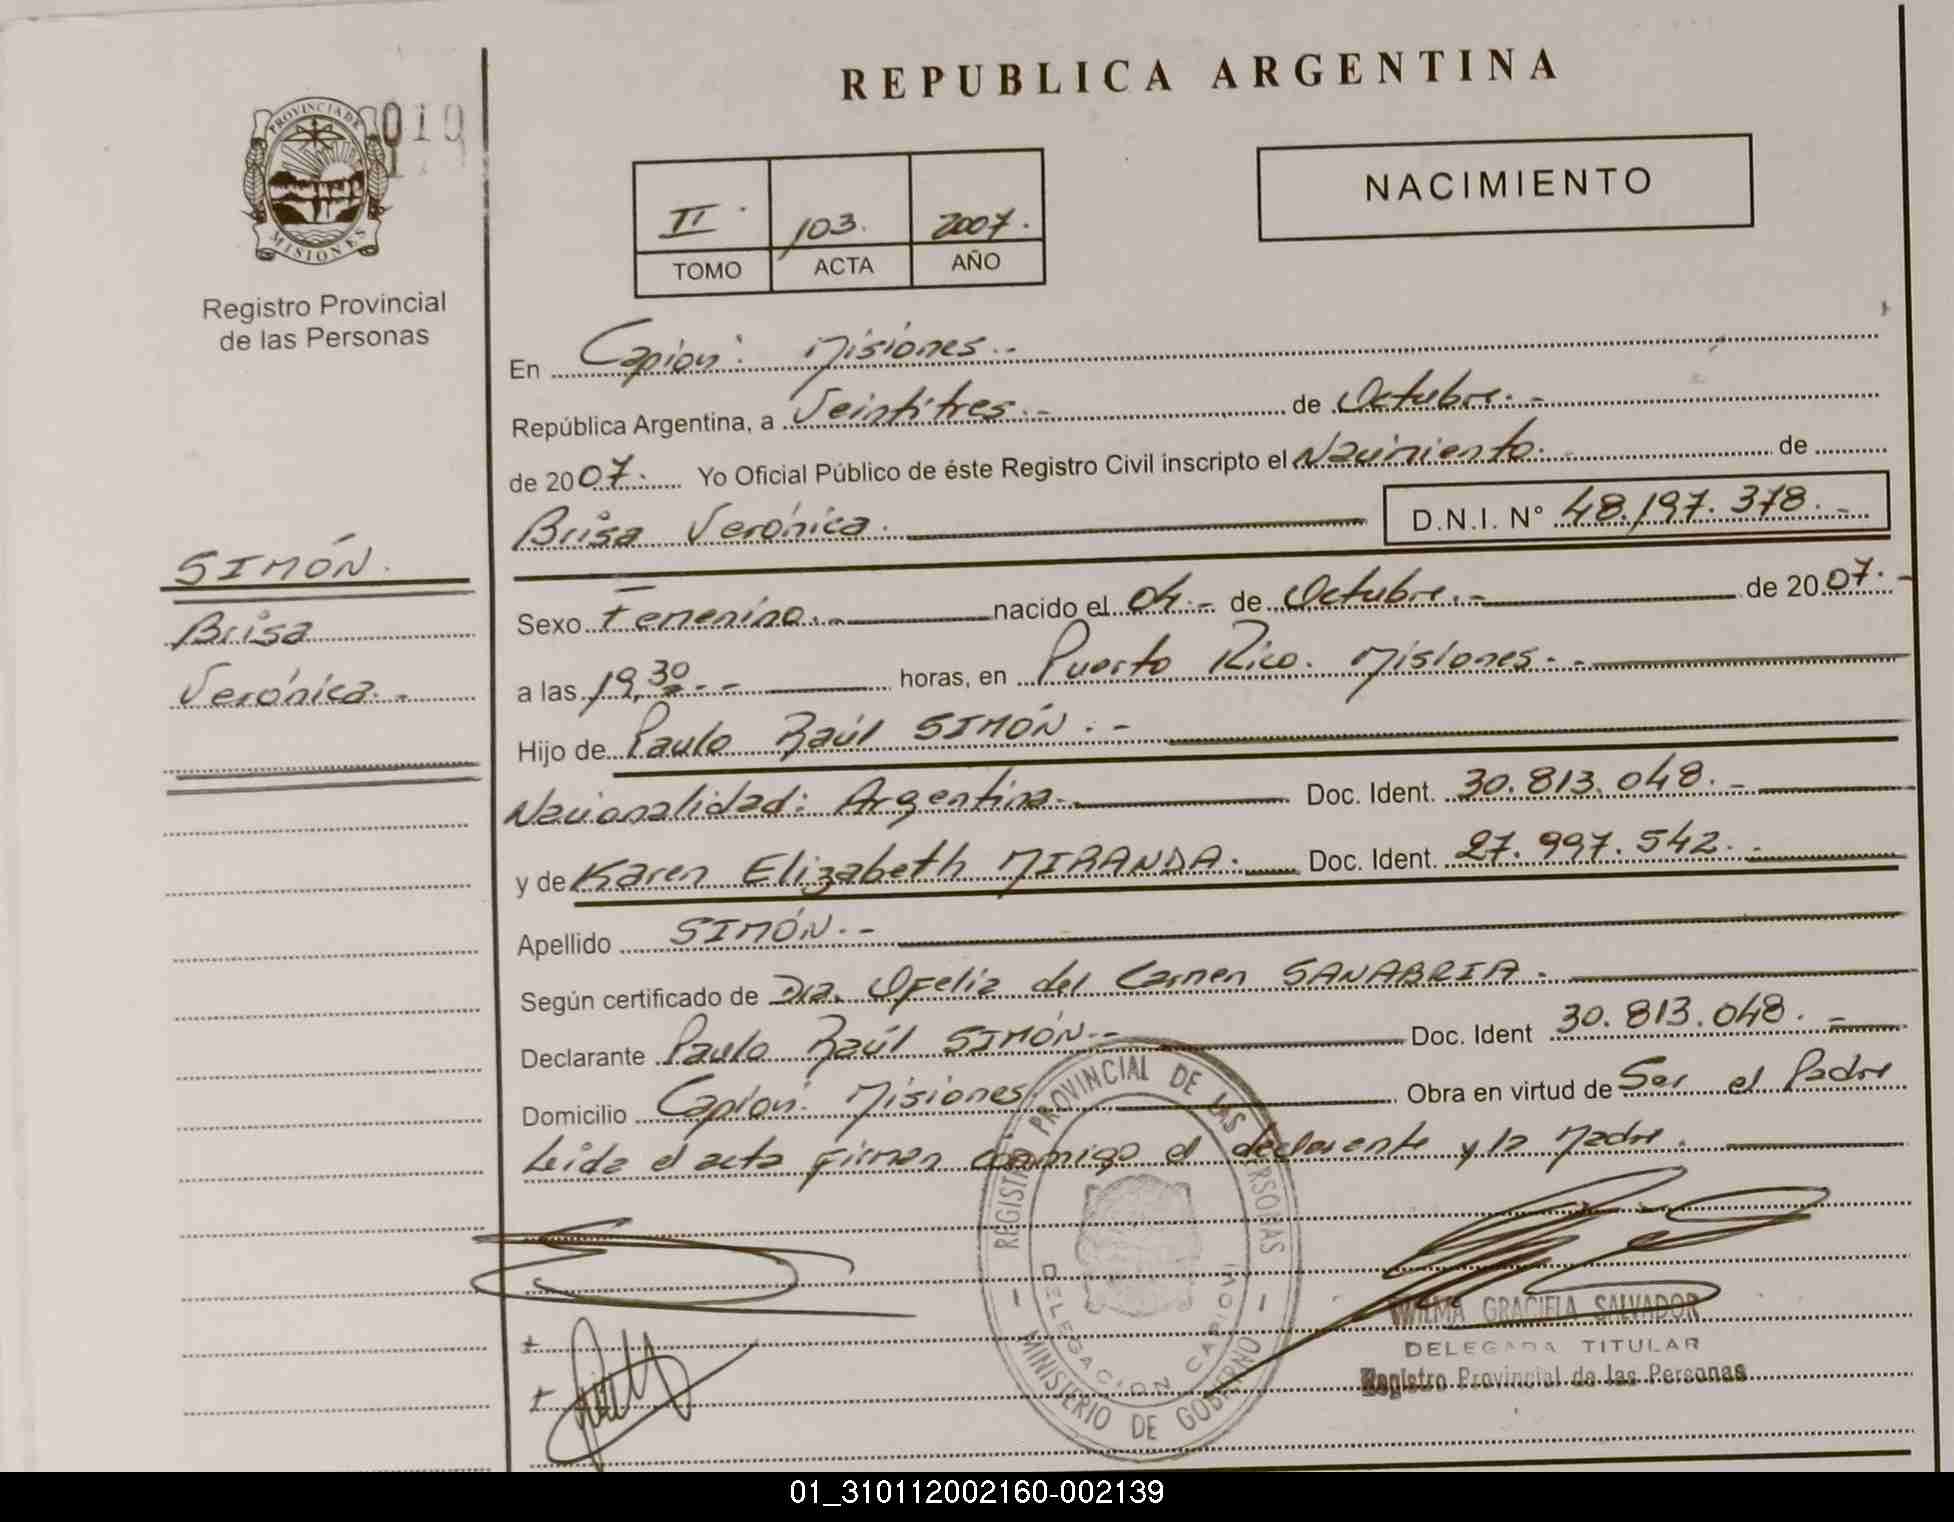 REPUBLICA ARGENTINA
PROVINCIA DE
MISIONES
019
Registro Provincial
de las Personas
NACIMIENTO
II . 103. 2007.
TOMO ACTA AÑO
En Capioví Misiones.-
República Argentina, a Veintitres.- de Octubre.-
de 2007. Yo Oficial Público de éste Registro Civil inscripto el Nacimiento. de
Brisa Verónica. D.N.I. N° 48.197.378.-
SIMÓN.
Brisa
Verónica.-
Sexo Femenino.- nacido el 04.- de Octubre.- de 2007.-
a las 19,30.-- horas, en Puerto Rico. Misiones.-
Hijo de Paulo Raúl SIMÓN.-
Nacionalidad: Argentina.- Doc. Ident. 30.813.048.-
y de Karen Elizabeth MIRANDA. Doc. Ident. 27.997.542.-
Apellido SIMÓN.-
Según certificado de Dra. Ofelia del Carmen SANABRIA.-
Declarante Paulo Raúl SIMÓN.- Doc. Ident 30.813.048.-
Domicilio Capioví Misiones Obra en virtud de Ser el Padre
Leida el acta firman conmigo el declarante y la Madre.
REGISTRO PROVINCIAL DE LAS PERSONAS
DELEGACION CAPIOVI
MINISTERIO DE GOBIERNO
WILMA GRACIELA SALVADOR
DELEGADA TITULAR
Registro Provincial de las Personas
01_310112002160-002139